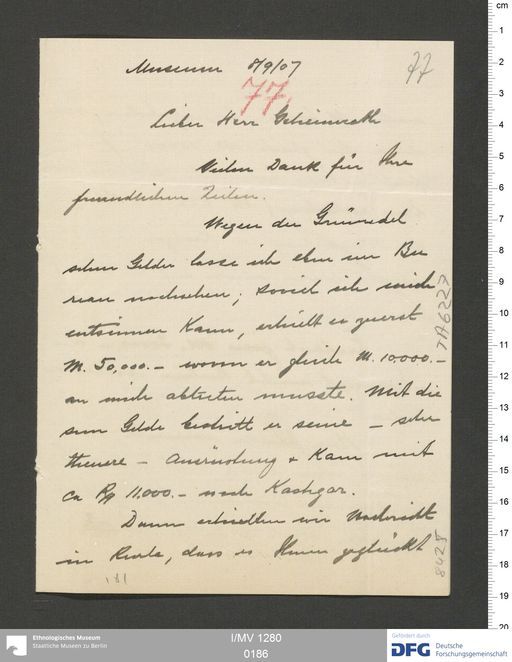 77
Museum 8/9/07
77.
Lieber Herr Geheimrath
Vielen Dank für Ihre
freundlichen Zeilen.
Wegen der Grünwedel
schen Gelder lasse ich eben im Bu
reau nachsehen; soviel ich mich
entsinnen kann, erhielt er zuerst
M. 50,000.- wovon er gleich M. 10.000.-
an mich abtreten musste. Mit die
sem Gelde bestritt er seine - sehr
theuere - Ausrüstung & kam mit
ca Rp 11.000.- nach Kashgar.
Dann erhielten wir Nachricht
in Korla, dass es Ihnen geglückt
TA 6227
8425
181
cm
1
2
3
4
5
6
7
8
9
10
11
12
13
14
15
16
17
18
19
20
Ethnologisches Museum
Staatliche Museen zu Berlin
I/MV 1280
0186
Gefördert durch
DFG Deutsche
Forschungsgemeinschaft